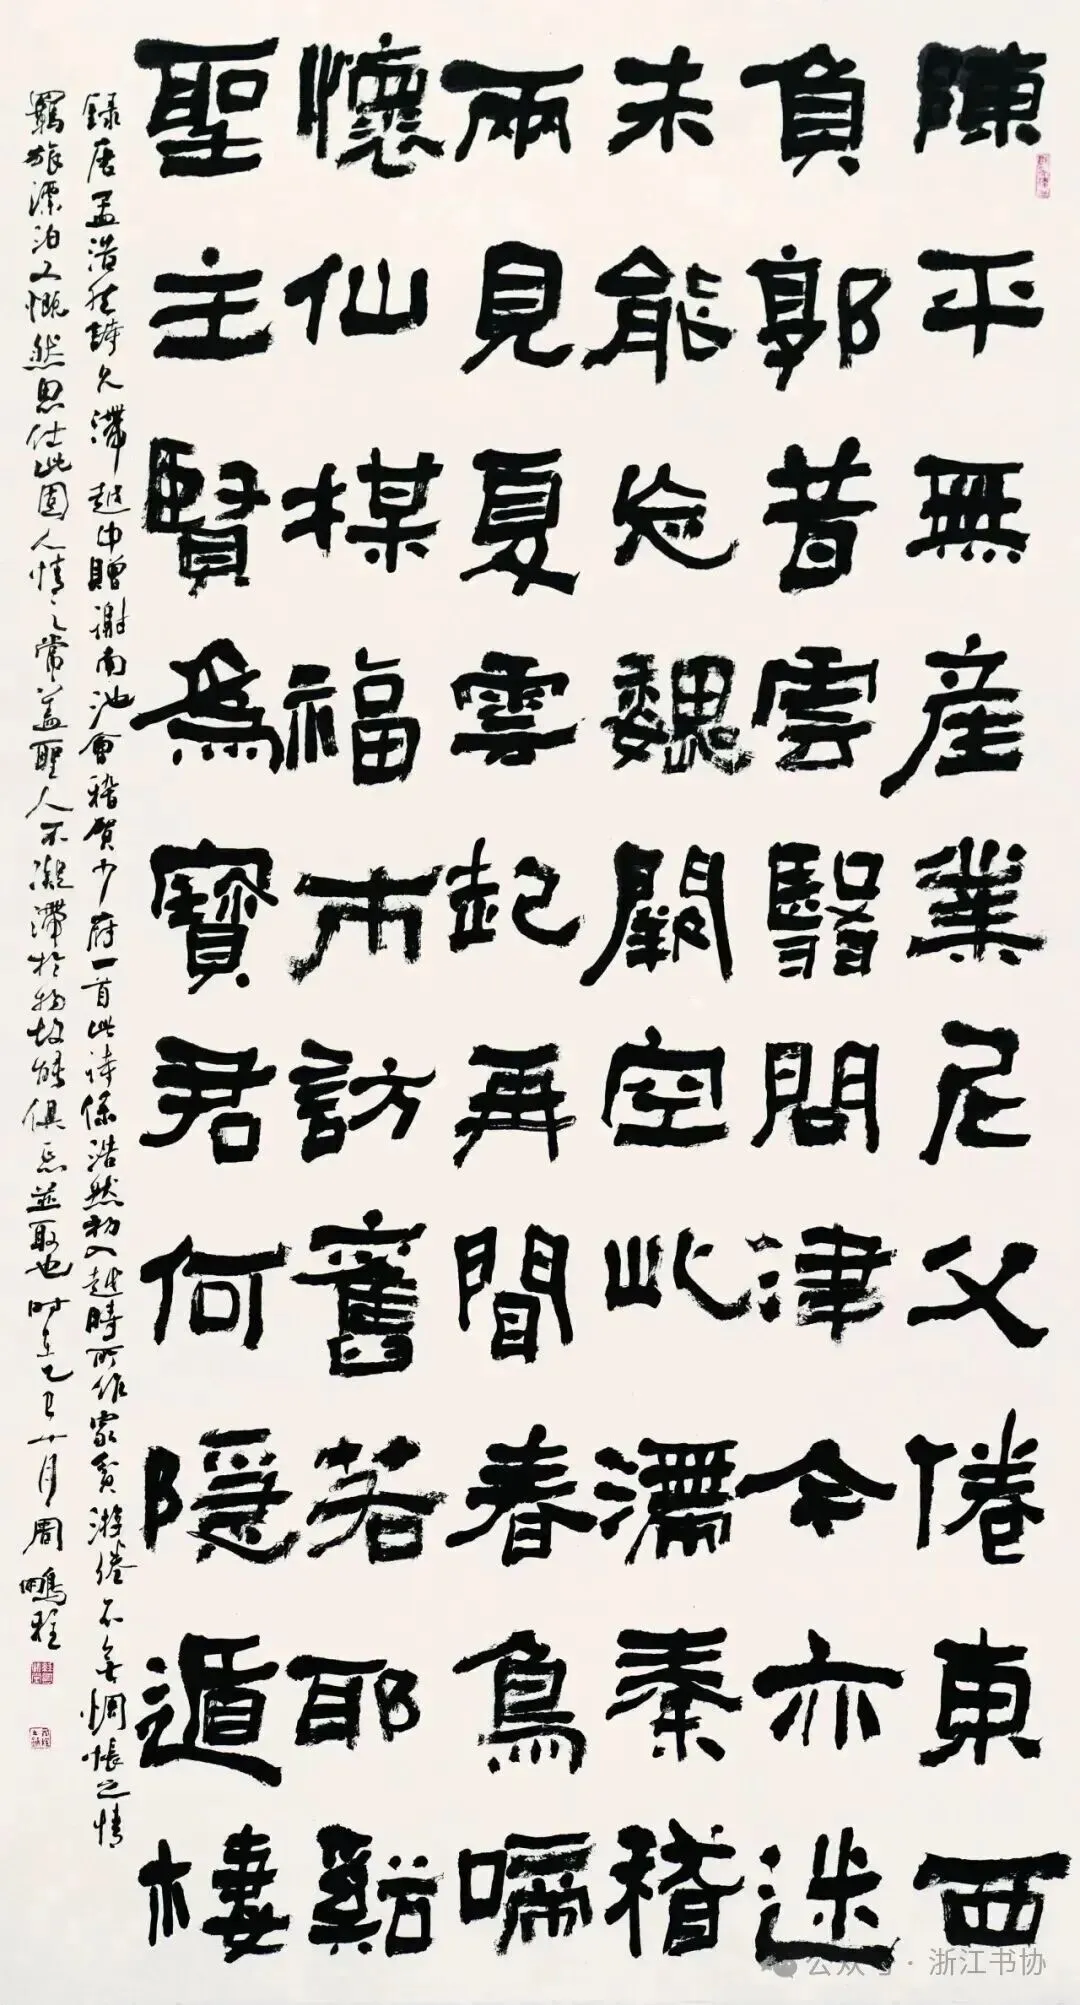 陳平無産業尼父倦東西
負郭昔雲翳問津今亦迷
未能忘魏闕空此滯秦稽
兩見夏雲起再聞春鳥啼
懷仙楳福市訪舊若耶谿
聖主賢爲寶君何隱遁棲
録唐孟浩然詩久滯越中贈謝南池會稽賀少府一首此詩係浩然初入越時所作家貧游倦不無惆悵之情
羈旅漂泊又慨然思仕此固人情之常蓋聖人不凝滯於物故能俱忘並取也時在乙巳十月周鵬程
公众号 · 浙江书协